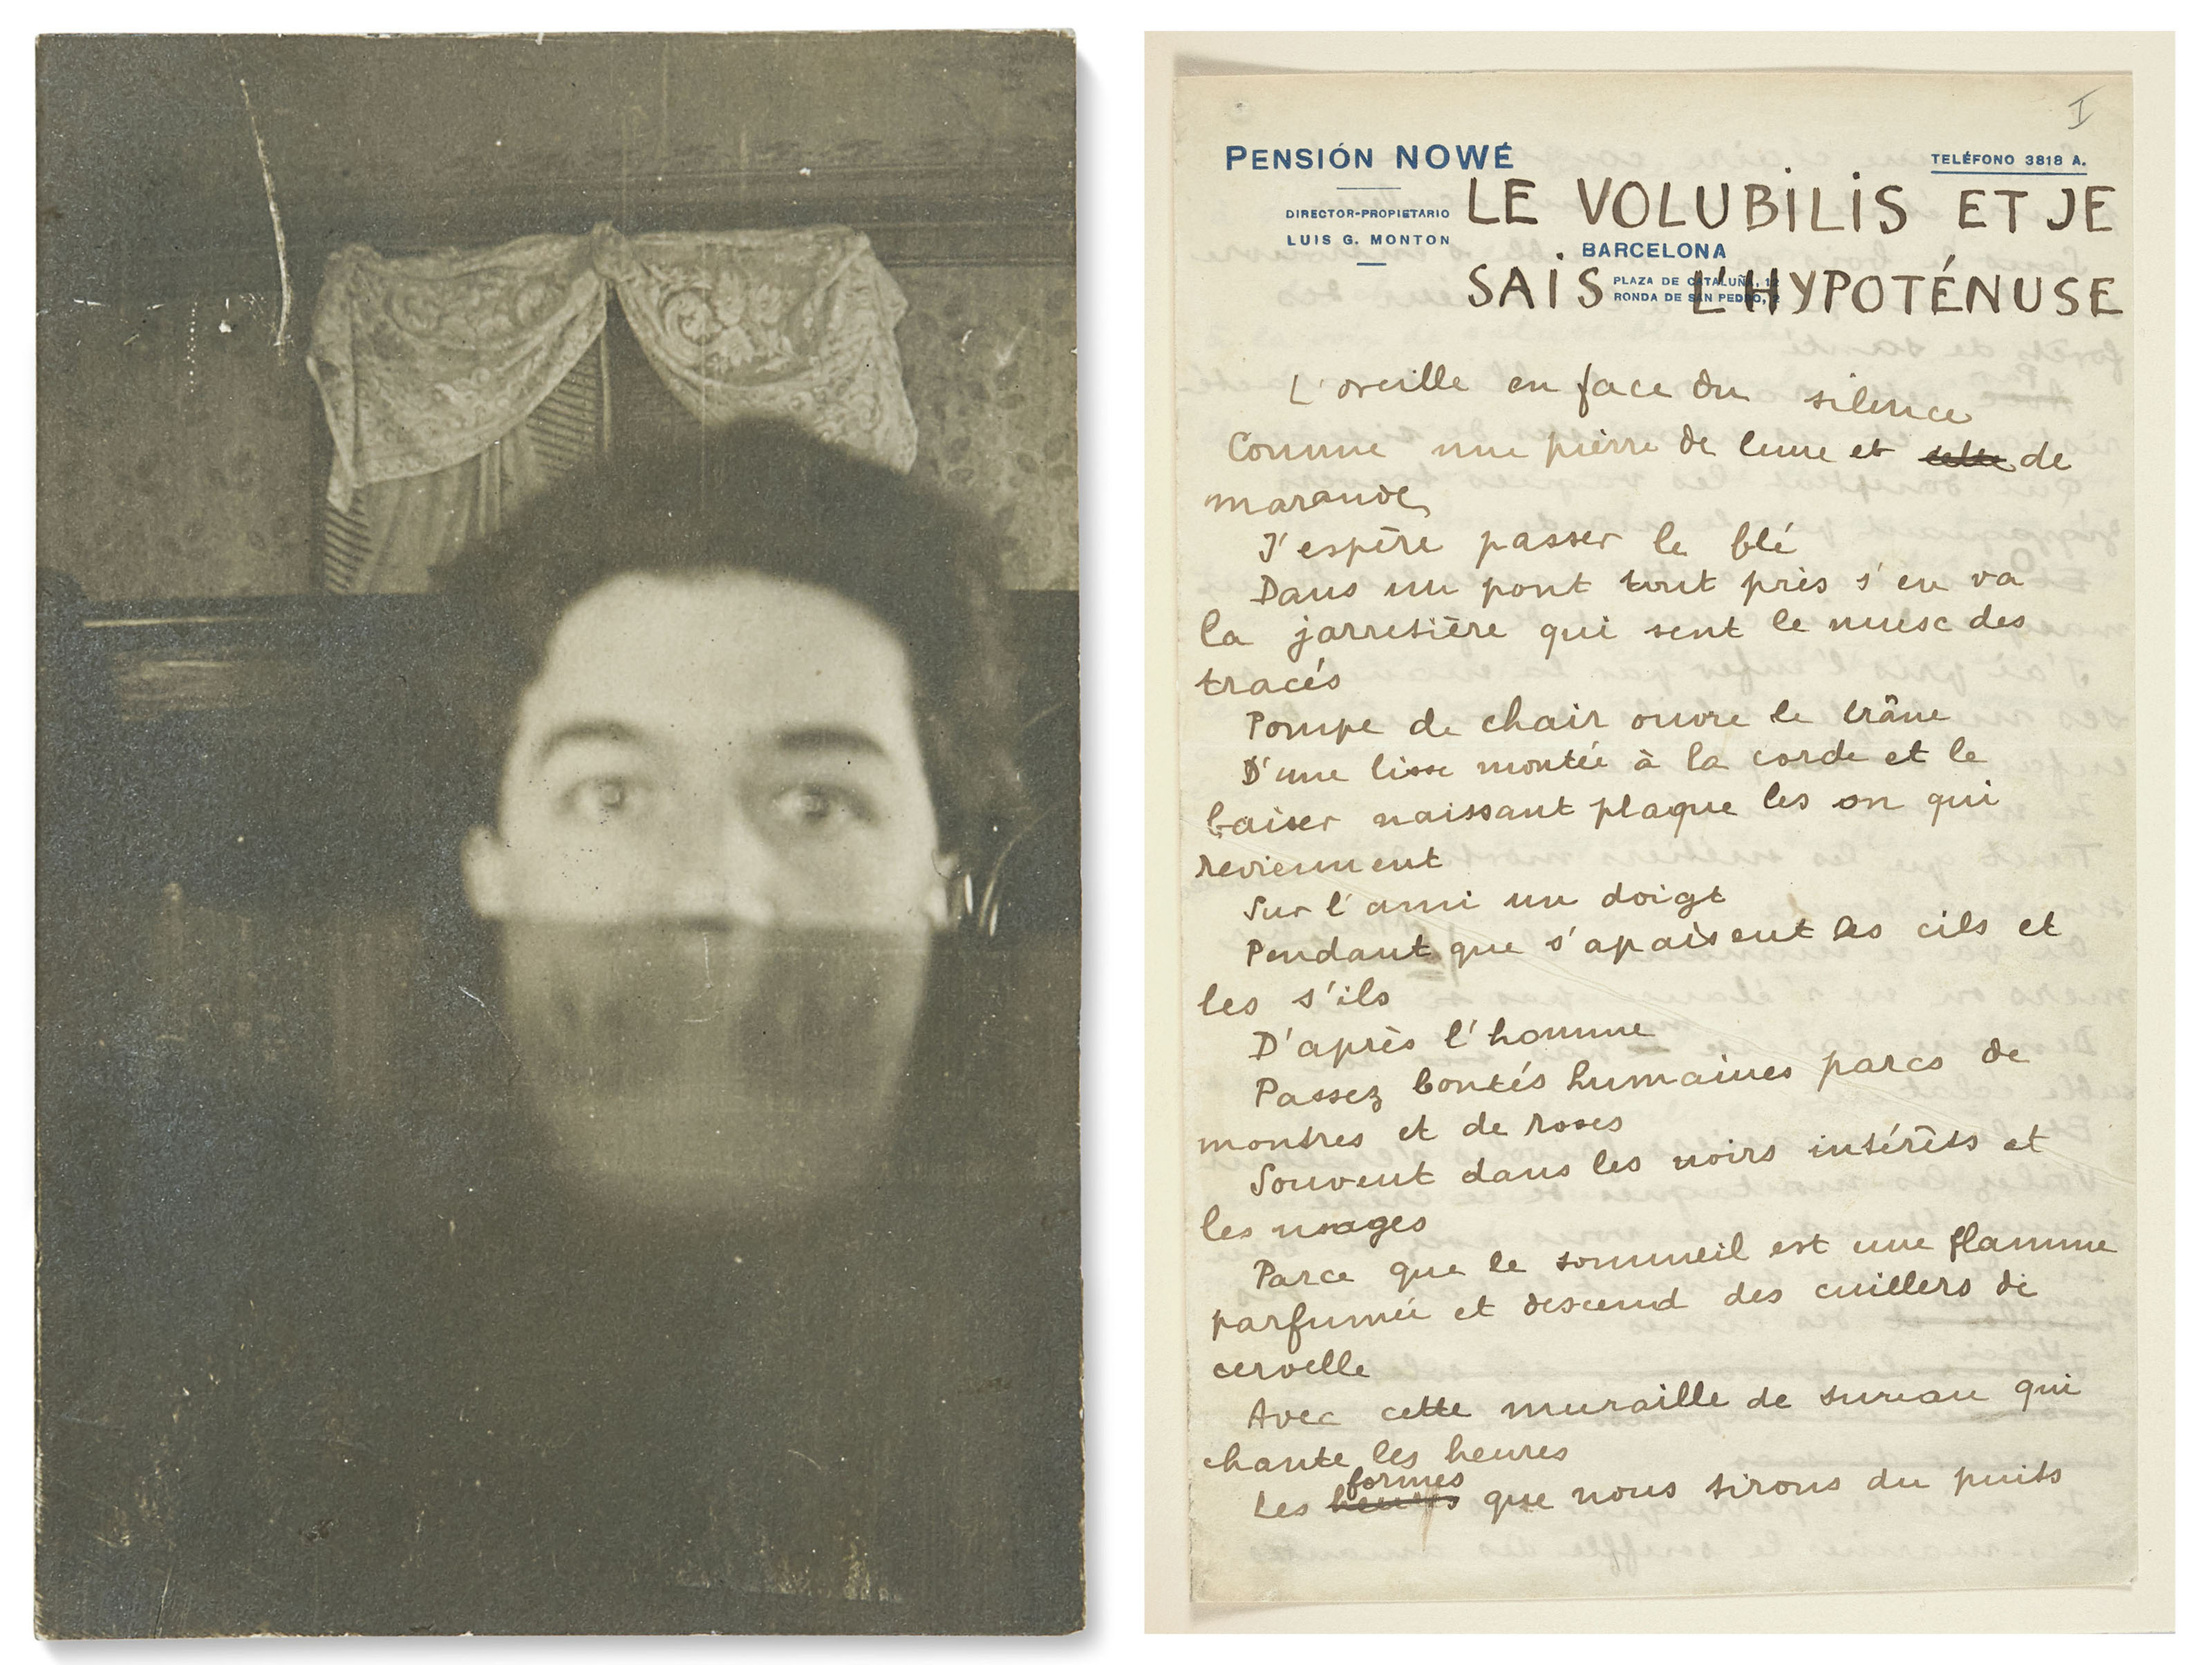 I
PENSIÓN NOWÉ
TELÉFONO 3818 A.
DIRECTOR-PROPIETARIO
LUIS G. MONTON
BARCELONA
PLAZA DE CATALUÑA, 12
RONDA DE SAN PEDRO, 2
LE VOLUBILIS ET JE
SAIS L'HYPOTÉNUSE
L'oreille en face du silence
Comme une pierre de lune et de
maraude
J'espère passer le blé
Dans un pont tout près s'en va
la jarretière qui sent le musc des
tracés
Pompe de chair ouvre le crâne
D'une lisse montée à la corde et le
baiser naissant plaque les on qui
reviennent
Sur l'ami un doigt
Pendant que s'apaisent les cils et
les s'ils
D'après l'homme
Passez bontés humaines parcs de
montres et de roses
Souvent dans les noirs intérêts et
les usages
Parce que le sommeil est une flamme
parfumée et descend des cuillers de
cervelle
Avec cette muraille de sureau qui
chante les heures
formes
Les heures que nous tirons du puits